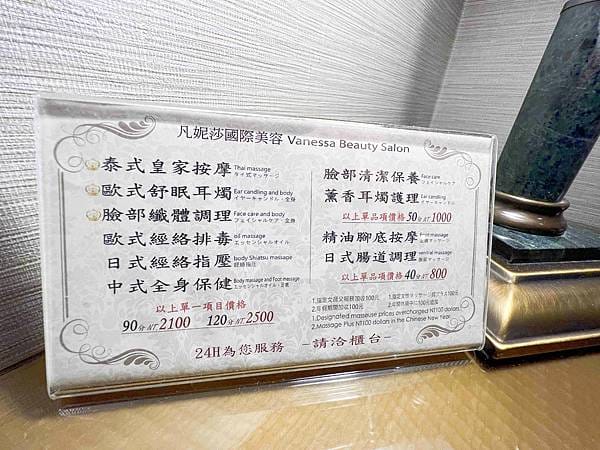 凡妮莎國際美容 Vanessa Beauty Salon
泰式皇家按摩 Thai massage タイ式マッサージ
歐式舒眠耳燭 Ear candling and body イヤーキャンドル・全身
臉部纖體調理 Face care and body フェイシャルケア・全身
歐式經絡排毒 oil massage エッセンシャルオイル
日式經絡指壓 body Shiatsu massage 経絡指圧
中式全身保健 Body massage and Foot massage
以上單一項目價格
90分NT2100 120分NT2500
臉部清潔保養 Face care フェイシャルケア
薰香耳燭護理 Ear candling イヤーキャンドル
以上單品項價格50分NT1000
精油腳底按摩 Foot massage 足裏マッサージ
日式腸道調理 ventral massage 腹部マッサージ
以上單品項價格40分NT800
1.指定女師父服務加收100元
2.年假期間加收100元
1.Designated masseuse prices overcharged NT100 dollars
2.Massage Plus NT100 dollars in the Chinese New Year
24H為您服務 －請洽櫃台－